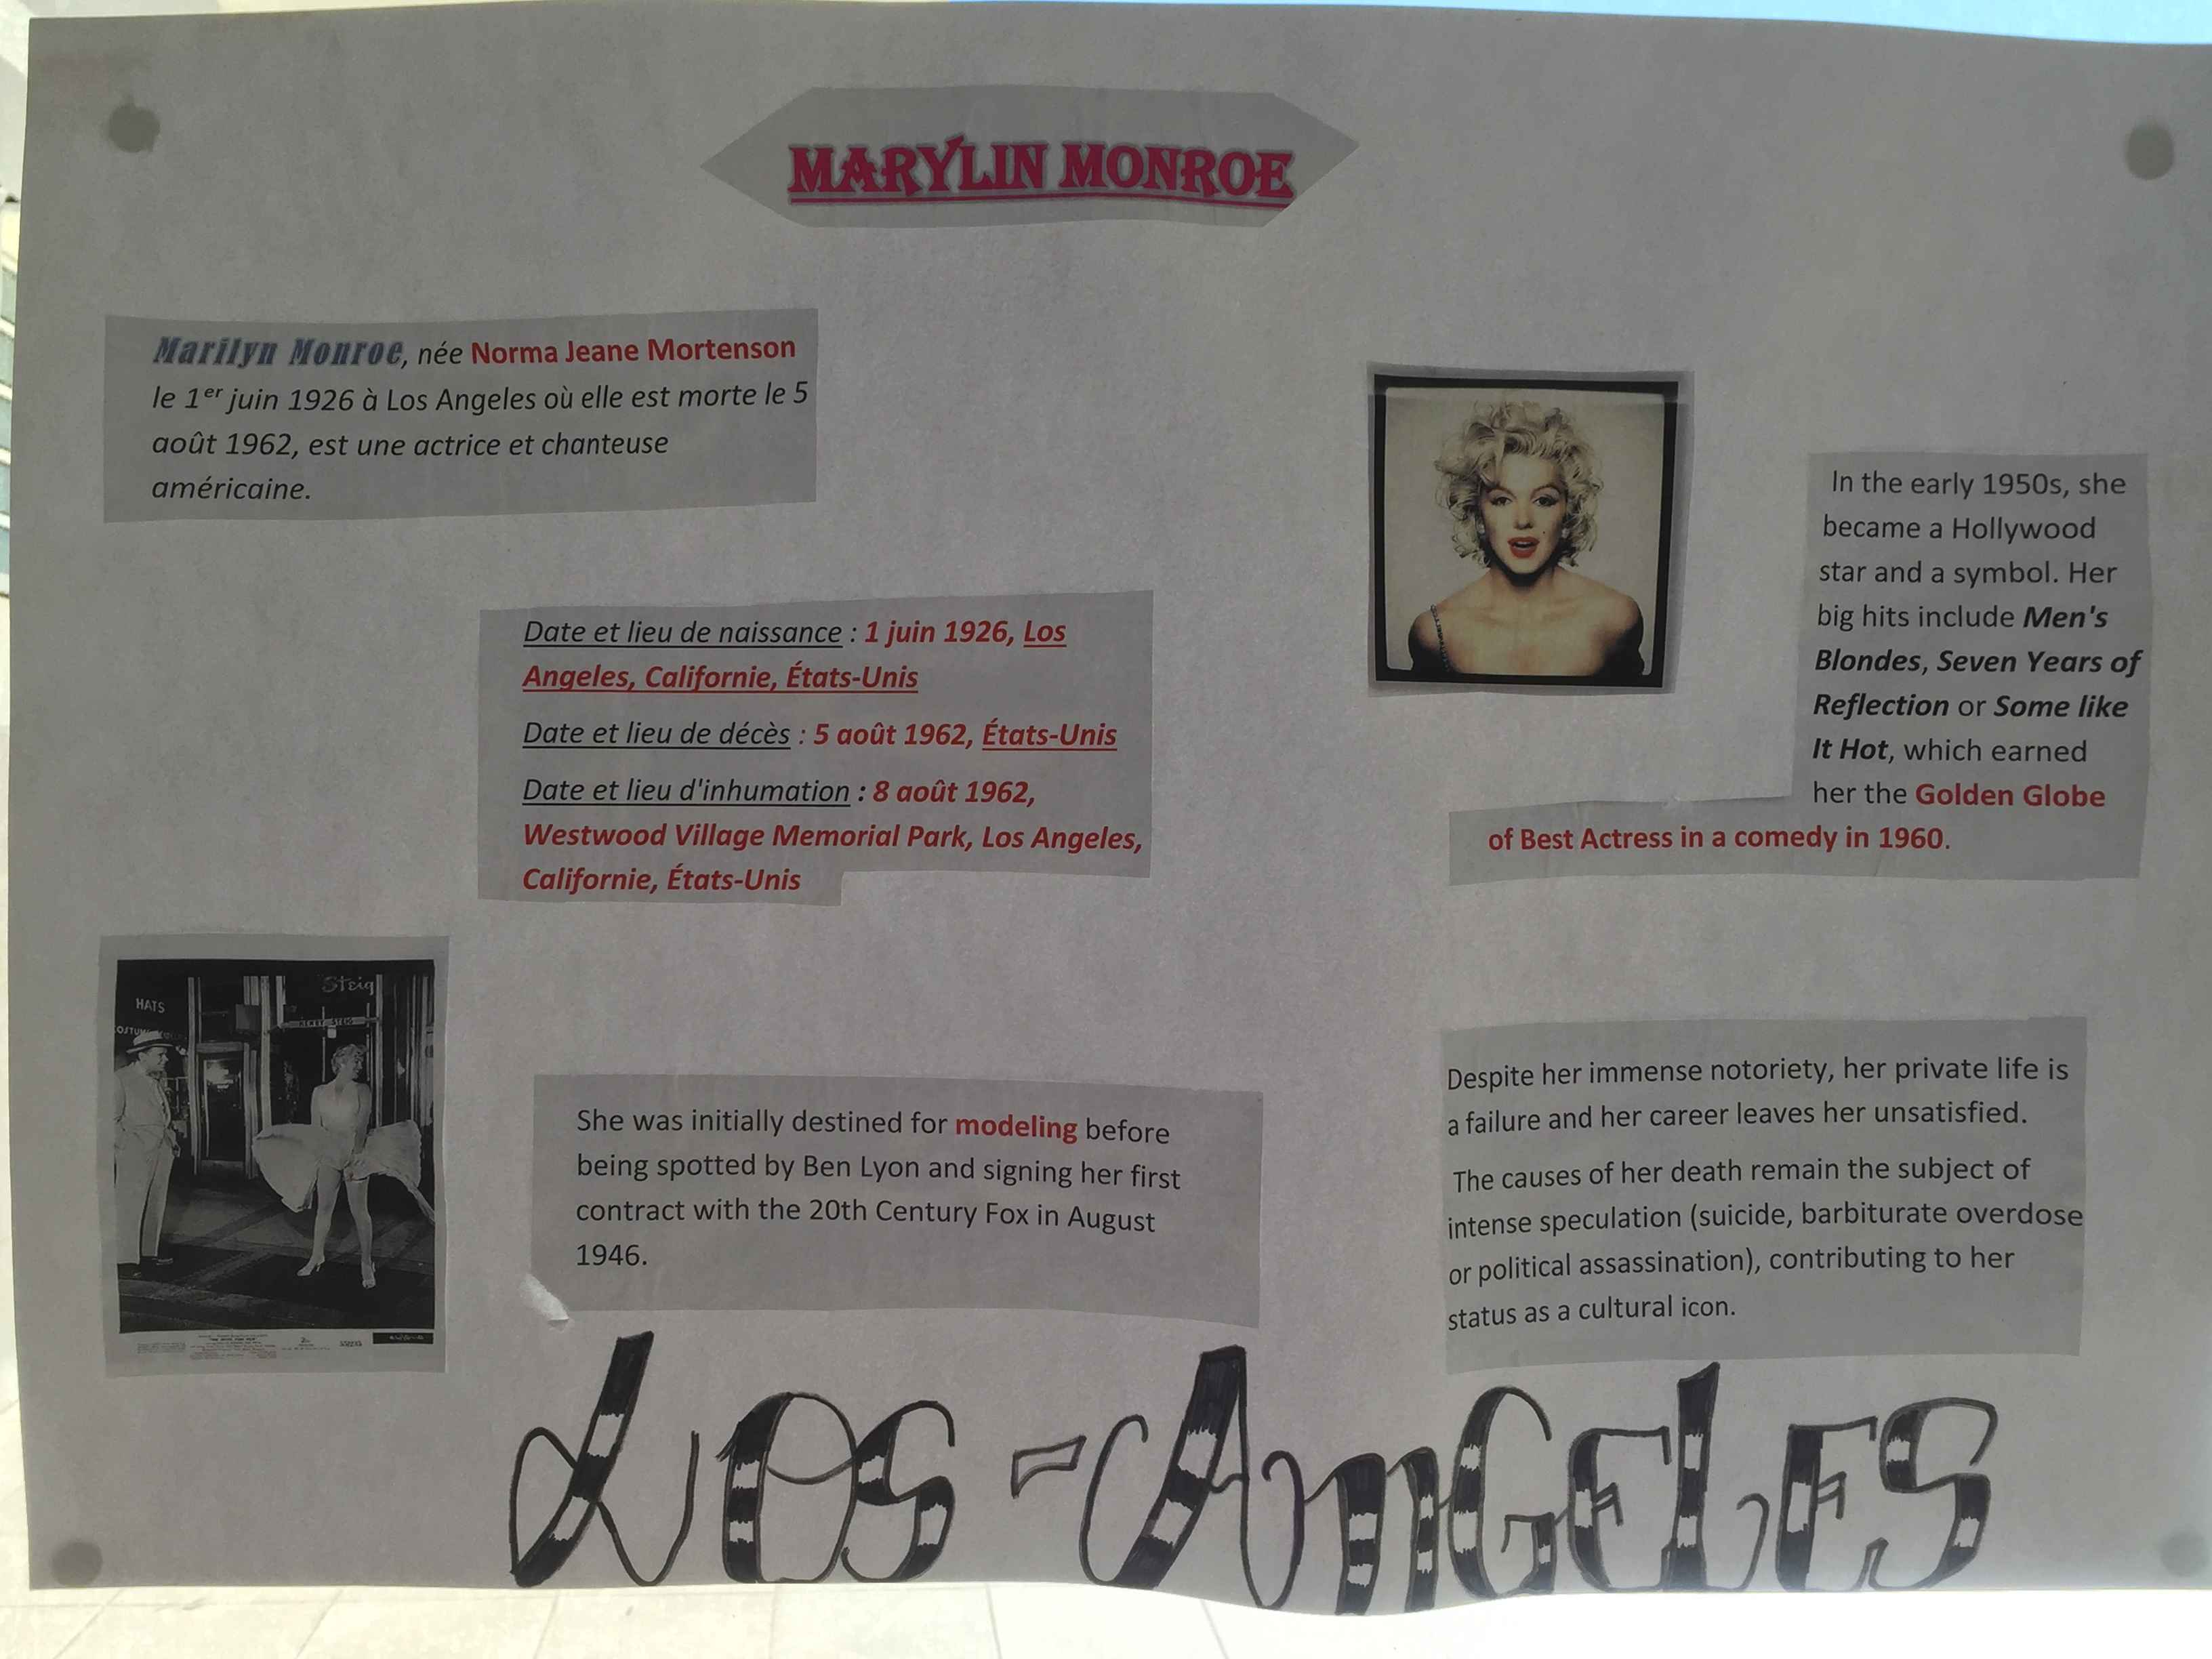 MARYLIN MONROE
Marilyn Monroe, née Norma Jeane Mortenson
le 1er juin 1926 à Los Angeles où elle est morte le 5
août 1962, est une actrice et chanteuse
américaine.
Date et lieu de naissance : 1 juin 1926, Los
Angeles, Californie, États-Unis
Date et lieu de décès : 5 août 1962, États-Unis
Date et lieu d'inhumation : 8 août 1962,
Westwood Village Memorial Park, Los Angeles,
Californie, États-Unis
In the early 1950s, she
became a Hollywood
star and a symbol. Her
big hits include Men's
Blondes, Seven Years of
Reflection or Some like
It Hot, which earned
her the Golden Globe
of Best Actress in a comedy in 1960.
Steig
HATS
HENRY STEIG
She was initially destined for modeling before
being spotted by Ben Lyon and signing her first
contract with the 20th Century Fox in August
1946.
Despite her immense notoriety, her private life is
a failure and her career leaves her unsatisfied.
The causes of her death remain the subject of
intense speculation (suicide, barbiturate overdose
or political assassination), contributing to her
status as a cultural icon.
LOS-ANGELES